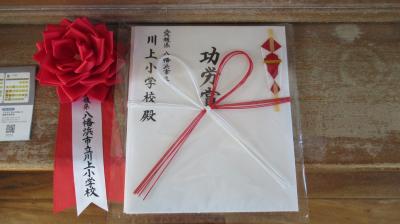 功労賞
愛媛県 八幡浜市立
川上小学校殿
八幡浜市立川上小学校